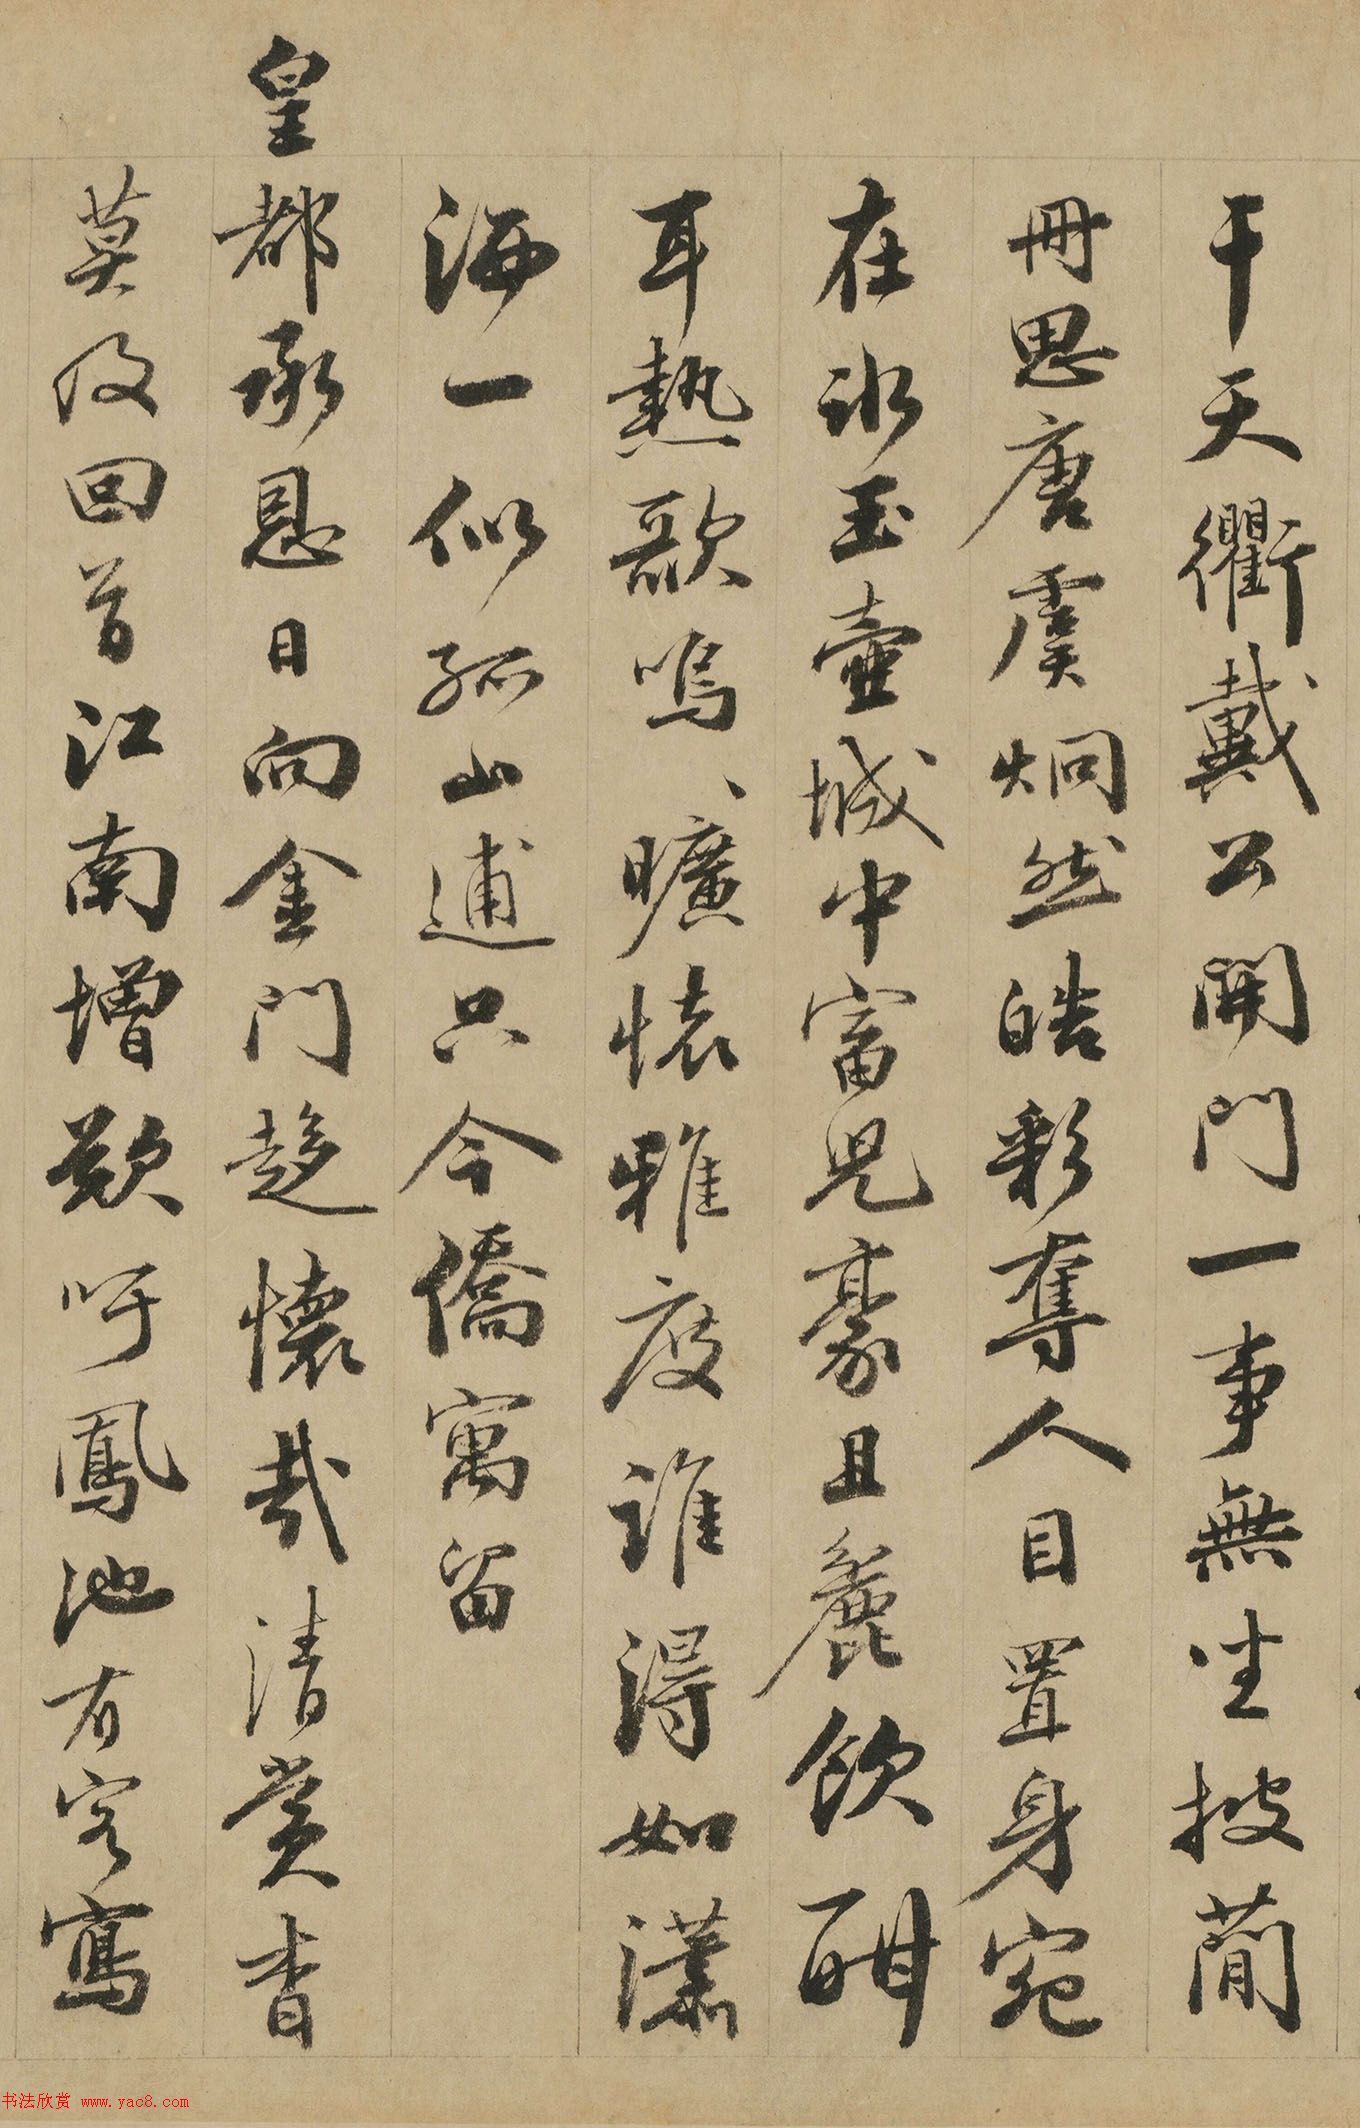 干天衢戴公開門一事無坐披簡
冊思唐虞炯然皓彩奪人目置身宛
在冰玉壺城中富兒豪且麗飲酣
耳熱歌嗚、曠懷雅度誰得如瀟
洒一似孤山逋只今僑寓留
皇都承恩日向金門趍懷哉清賞杳
莫及回首江南增歎吁鳳池有客寫
书法欣赏 www.yac8.com